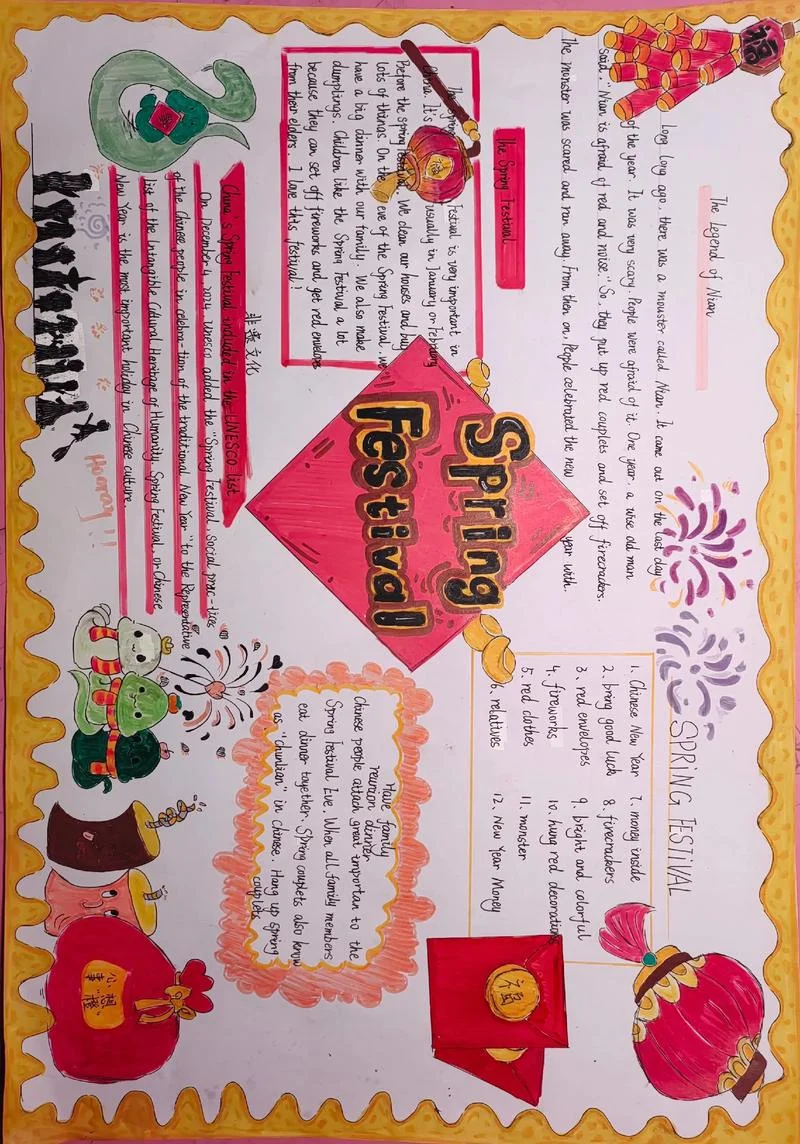 The Legend of Nian
Long long ago, there was a mouster called Nian. It came out on the last day
of the year. It was very scary. People were afraid of it. One year, a wise old man
said, "Nian is afraid of red and noise." So, they put up red couplets and set off firecrackers.
The monster was scared and ran away. From then on, People celebrated the new year with.
SPRING FESTIVAL
1. Chinese New Year 7. money inside
2. bring good luck 8. firecrackers
3. red envelopes 9. bright and colorful
4. fireworks 10. hung red decorations
5. red clothes 11. monster
6. relatives 12. New Year Money
The Spring Festival
The Spring Festival is very important in
China. It's usually in January or February
Before the spring festival, we clean our houses and buy
lots of things. On the eve of the Spring Festival, we
have a big dinner with our family. We also make
dumplings. Children like the Spring Festival a lot
because they can set off fireworks and get red envelops
from their elders. I love this festival!
Spring
Festival
福
福
非遗文化
China's Spring Festival included in the UNESCO list
On December 4, 2024, Unesco added the "Spring Festival, social prac-tices
of the Chinese people in celebra-tion of the traditional New Year" to the Representative
list of the Intangible Cultural Heritage of Humanity. Spring Festival, or Chinese
New Year is the most important holiday in Chinese culture.
Hooray!!
Have family
reunion dinner
Chinese people attach great importan to the
Spring Festival Eve. When all family members
eat dinner together. Spring couplets also know
as "Chunlian" in Chinese. Hang up spring
couplets
心想
事橙